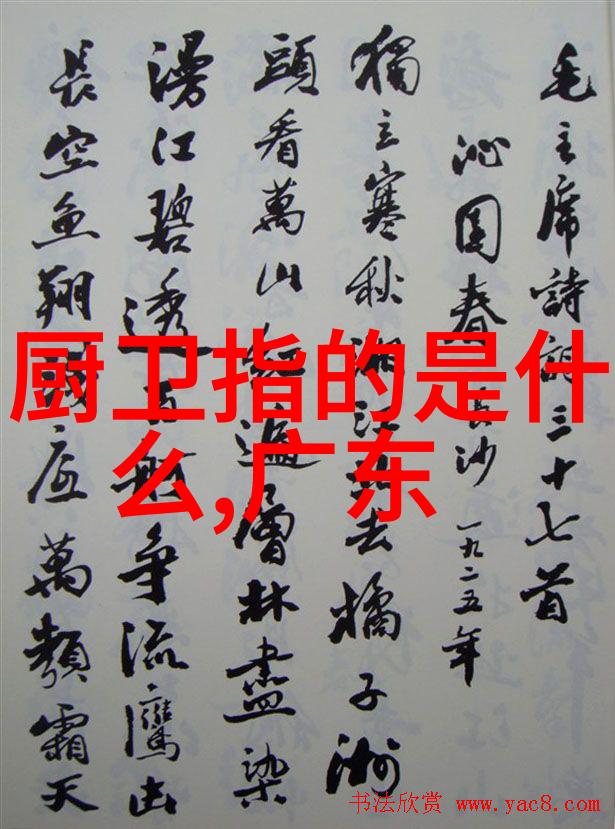 毛主席詩詞三十七首
沁園春 長沙 一九二五年
獨立寒秋湘江北去橘子洲
頭看萬山紅遍層林盡染
漫江碧透百舸爭流鷹击
長空魚翔淺底萬類霜天
厨卫指的是什
么,广东
书法欣赏 www.yac8.com